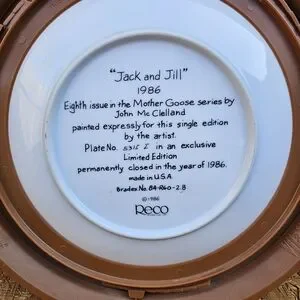 "Jack and Jill"
1986
Eighth issue in the Mother Goose series by
John McClelland
painted expressly for this single edition
by the artist.
Plate No. 5315 I in an exclusive
Limited Edition
permanently closed in the year of 1986.
made in U.S.A.
Bradex No. 84-R60-2.8
© 1986
Reco